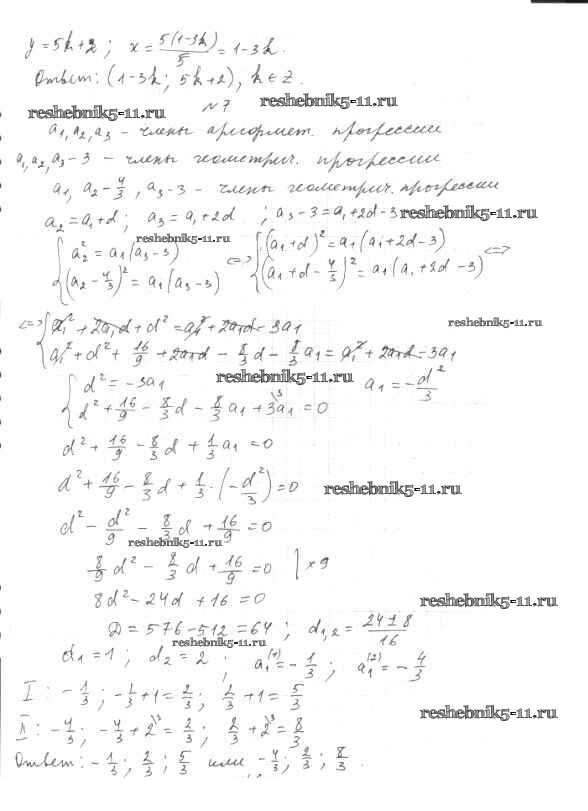 y = 5k+2; x = 5(1-3k)/5 = 1-3k.
Ответ: (1-3k; 5k+2), k ∈ Z.
reshebnik5-11.ru reshebnik5-11.ru
№7
a₁, a₂, a₃ - члены арифмет. прогрессии
a₁, a₂, a₃-3 - члены геометрич. прогрессии
a₁, a₂-4/3, a₃-3 - члены геометрич. прогрессии
a₂ = a₁+d; a₃ = a₁+2d; a₃-3 = a₁+2d-3 reshebnik5-11.ru
reshebnik5-11.ru
{ a₂² = a₁(a₃-3) <=> { (a₁+d)² = a₁(a₁+2d-3) <=>
{ (a₂-4/3)² = a₁(a₃-3) { (a₁+d-4/3)² = a₁(a₁+2d-3)
<=> { a₁² + 2a₁d + d² = a₁² + 2a₁d - 3a₁ reshebnik5-11.ru
{ a₁² + d² + 16/9 + 2a₁d - 8/3 d - 8/3 a₁ = a₁² + 2a₁d - 3a₁
reshebnik5-11.ru
{ d² = -3a₁ a₁ = -d²/3
{ d² + 16/9 - 8/3 d - 8/3 a₁ + 3a₁ = 0
d² + 16/9 - 8/3 d + 1/3 a₁ = 0
d² + 16/9 - 8/3 d + 1/3 · (-d²/3) = 0 reshebnik5-11.ru
d² - d²/9 - 8/3 d + 16/9 = 0
reshebnik5-11.ru
8/9 d² - 8/3 d + 16/9 = 0 | ×9
8d² - 24d + 16 = 0 reshebnik5-11.ru
D = 576 - 512 = 64; d₁,₂ = 24±8/16
reshebnik5-11.ru
d₁ = 1; d₂ = 2; a₁⁽¹⁾ = -1/3; a₁⁽²⁾ = -4/3
I: -1/3; -1/3+1 = 2/3; 2/3+1 = 5/3
II: -4/3; -4/3+2\³ = 2/3; 2/3+2\³ = 8/3 reshebnik5-11.ru
Ответ: -1/3; 2/3; 5/3 или -4/3; 2/3; 8/3.